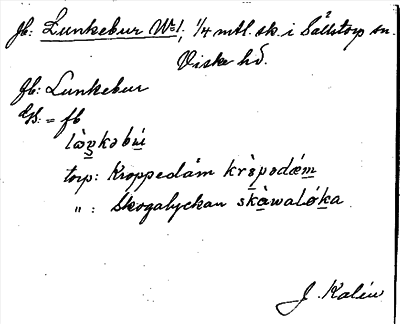 fb: Lunkebur No 1, 1/4 mtl. sk. i Sällstorp sn.
Viske hd.
fb: Lunkebur
Uh: = fb
lòŋkəbúi
torp: Kroppedäm krɛ̀podæm
" : Skogalyckan skàwalóka
J. Kalén